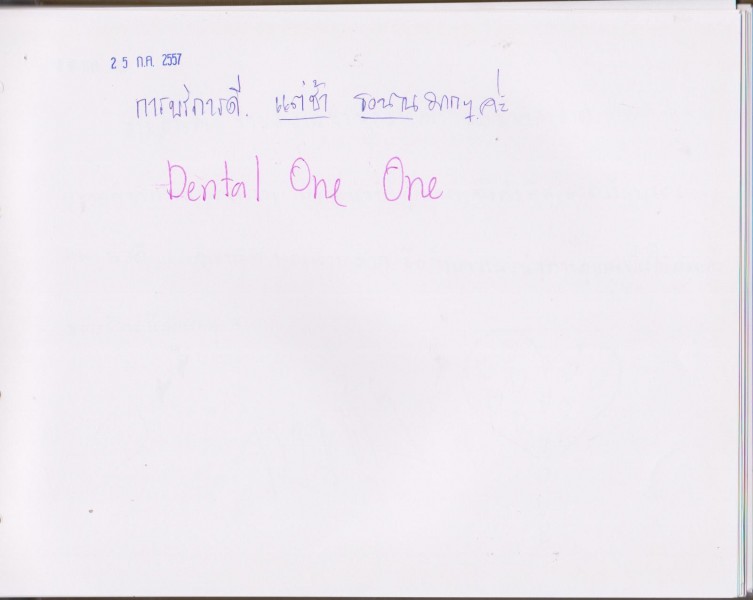 25 ก.ค. 2557
การบริการดี. แต่ช้า รอนานมากๆ ค่ะ
Dental One One